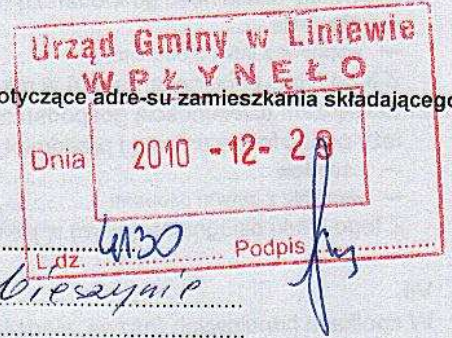 Urząd Gminy w Liniewie
WPŁYNĘŁO
otyczące adre-su zamieszkania składającego
Dnia 2010 -12- 2
L.dz. 4130 Podpis